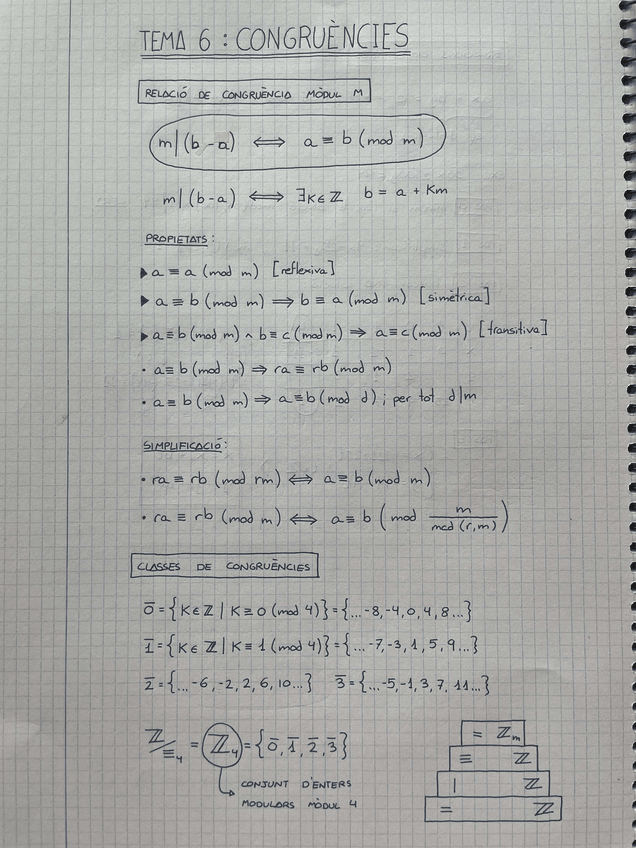 TEMA 6 : CONGRUÈNCIES
RELACIÓ DE CONGRUÈNCIA MÒDUL M
m|(b-a) ⟺ a ≡ b (mod m)
m|(b-a) ⟺ ∃K∈ℤ b = a + Km
PROPIETATS:
▶ a ≡ a (mod m) [reflexiva]
▶ a ≡ b (mod m) ⟹ b ≡ a (mod m) [simètrica]
▶ a ≡ b (mod m) ∧ b ≡ c (mod m) ⟹ a ≡ c (mod m) [transitiva]
· a ≡ b (mod m) ⟹ ra ≡ rb (mod m)
· a ≡ b (mod m) ⟹ a ≡ b (mod d) ; per tot d|m
SIMPLIFICACIÓ:
· ra ≡ rb (mod rm) ⟺ a ≡ b (mod m)
· ra ≡ rb (mod m) ⟺ a ≡ b (mod m/mcd(r,m))
CLASSES DE CONGRUÈNCIES
0̅ = {K∈ℤ | K ≡ 0 (mod 4)} = {...-8,-4,0,4,8...}
1̅ = {K∈ℤ | K ≡ 1 (mod 4)} = {...-7,-3,1,5,9...}
2̅ = {...-6,-2,2,6,10...} 3̅ = {...-5,-1,3,7,11...}
ℤ/≡₄ = ℤ₄ = {0̅,1̅,2̅,3̅}
CONJUNT D'ENTERS
MODULARS MÒDUL 4
= ℤm
≡ ℤ
| ℤ
= ℤ